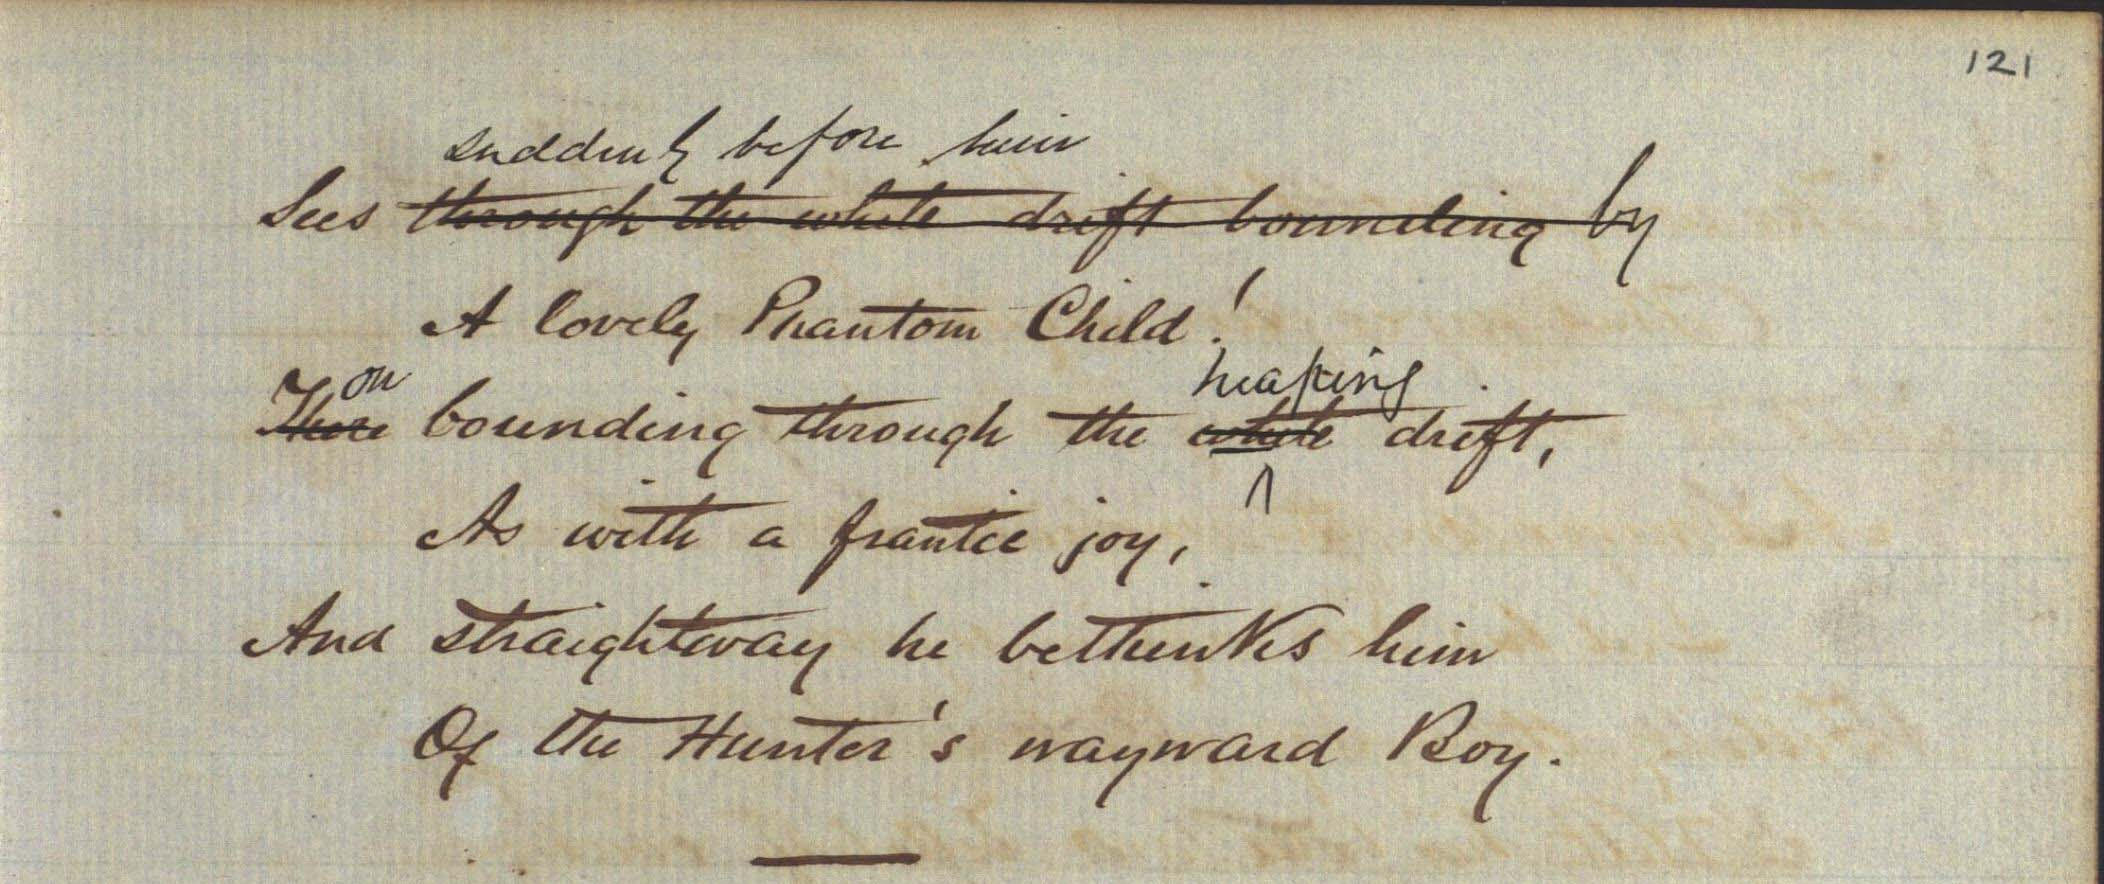 121
suddenly before him
Sees through the white drift bounding by
A lovely Phantom Child!
on heaping
There bounding through the white drift,
As with a frantic joy,
And straightway he bethinks him
Of the Hunter's wayward Boy.